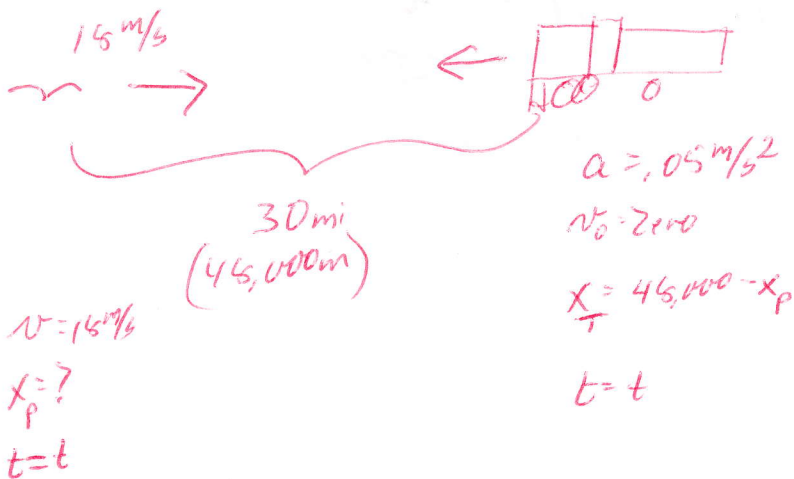 18 m/s
30 mi
(48,000m)
a = .05 m/s²
v₀ = Zero
x_T = 48,000 - x_p
t = t
v = 18 m/s
x_p = ?
t = t